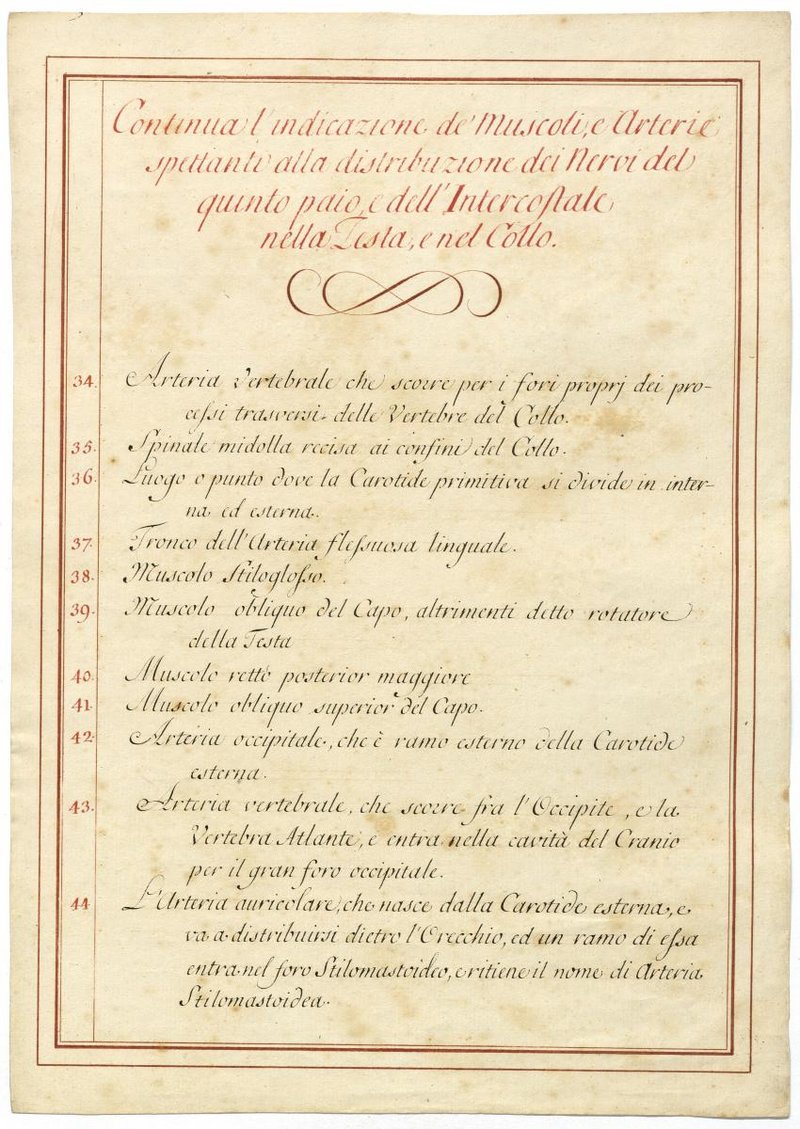 Continua l'indicazione de' Muscoli, e Arterie
spettanti alla distribuzione dei Nervi del
quinto paio, e dell'Intercostale
nella Testa, e nel Collo.
34. Arteria Vertebrale che scorre per i fori proprj dei pro-
cessi trasversi delle Vertebre del Collo.
35. Spinale midolla recisa ai confini del Collo.
36. Luogo o punto dove la Carotide primitiva si divide in inter-
na ed esterna.
37. Tronco dell'Arteria flessuosa linguale.
38. Muscolo Stiloglosso.
39. Muscolo obliquo del Capo, altrimenti detto rotatore
della Testa
40. Muscolo retto posterior maggiore
41. Muscolo obliquo superior del Capo.
42. Arteria occipitale, che è ramo esterno della Carotide
esterna.
43. Arteria vertebrale, che scorre fra l'Occipite, e la
Vertebra Atlante, e entra nella cavità del Cranio
per il gran foro occipitale.
44 L'Arteria auricolare, che nasce dalla Carotide esterna, e
va a distribuirsi dietro l'Orecchio, ed un ramo di essa
entra nel foro Stilomastoideo, e ritiene il nome di Arteria
Stilomastoidea.